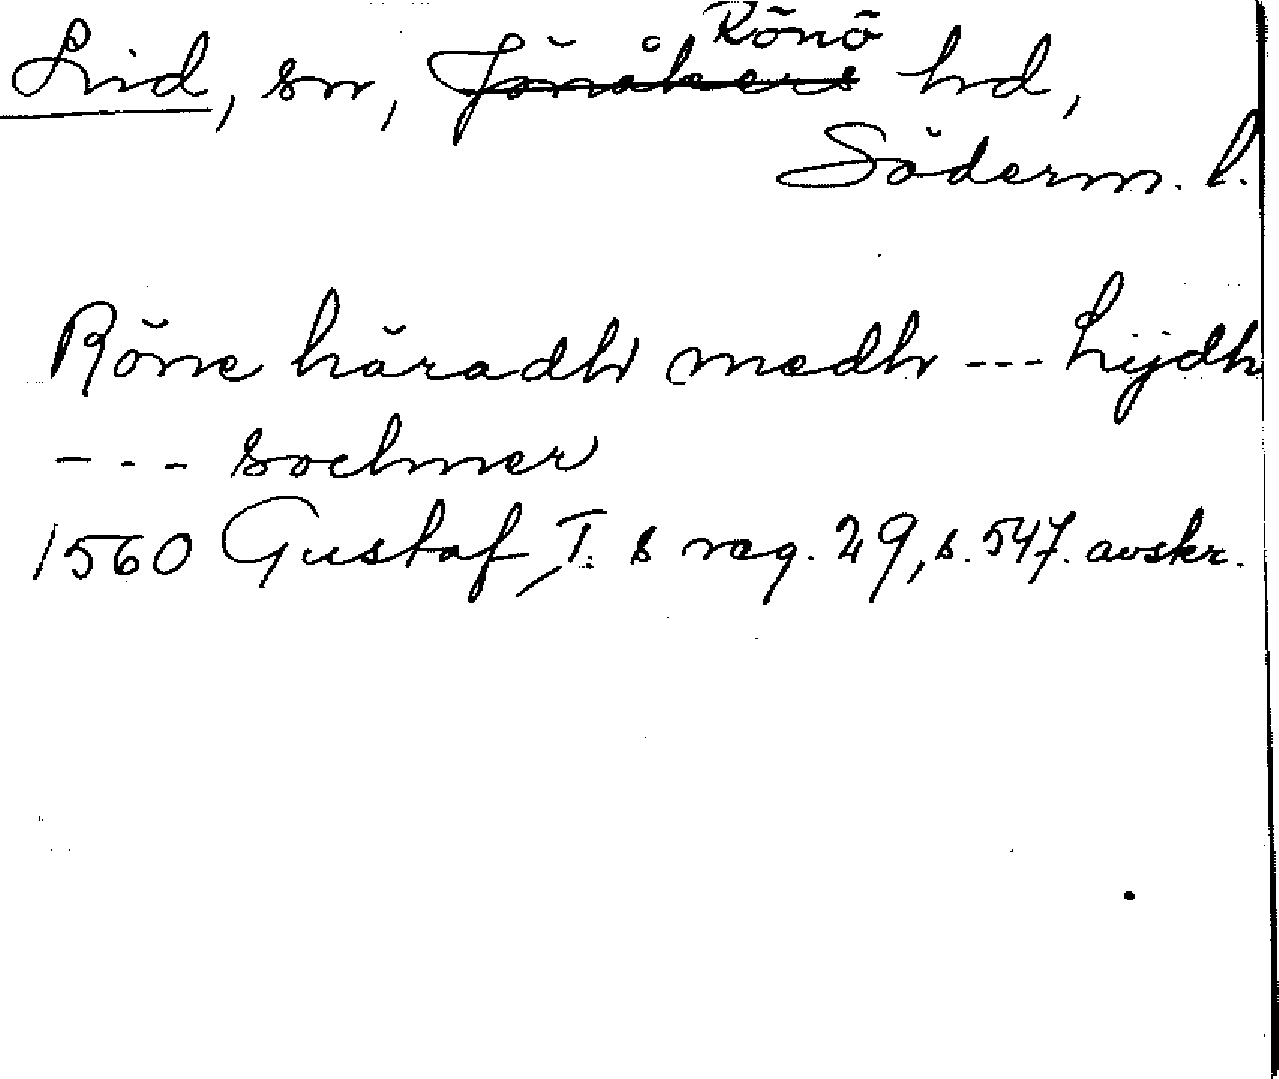 Lid, sn, Jönåkers Rönö hd,
Söderm. l.
Röne häradh medh --- Lijdh
--- sochner
1560 Gustaf I:s reg. 29, s. 547. avskr.